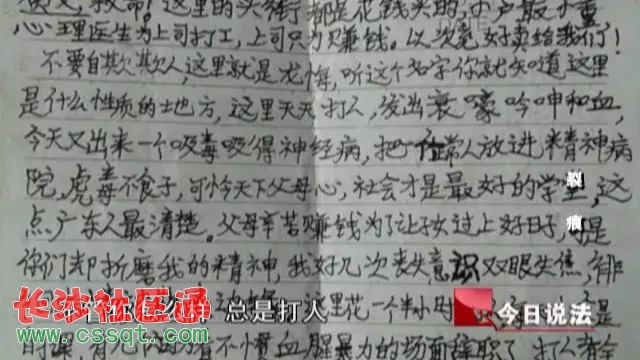 救命!这里的头衔都是花钱买的,
心理医生为上司打工,上司只为赚钱。以次充好卖给我们!
不要自欺欺人,这里就是龙悔,听这个名字你就知道这里
是什么性质的土地方,这里天天打人,发出哀嚎呤呻和血,
今天又出来一个吸毒吸得神经病,把正常人放进精神病
院,虎毒不食子,可怜天下父母心,社会才是最好的学堂,这
点广东人最清楚。父母辛苦赚钱为了让子女过上好日子,可是
你们却折磨我的精神,我好几次丧失意识双眼失焦,徘
裂痕
总是打人
里花一个半小时
今日说法
长沙社区通
www.cssqt.com
看不惯血腥暴力的场面辞职了